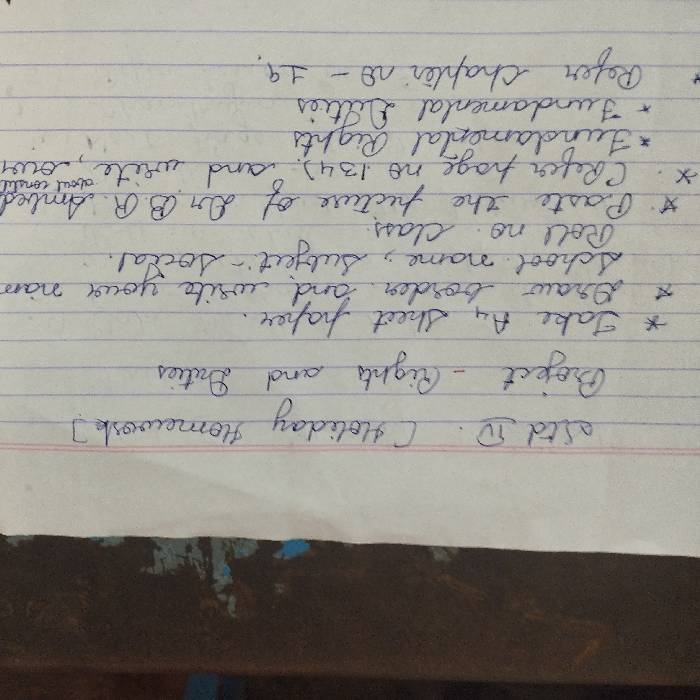 Std IV. [Holiday Homework]
Project - Rights and Duties
* Take A4 sheet paper.
* Draw border and write your nam
School name, Subject - Social.
Roll no. class.
* Paste the picture of Dr B. R. Ambed
about constit
* (Refer page no 134) and write,
* Fundamental Rights
* Fundamental Duties
* Refer Chapter no - 19.